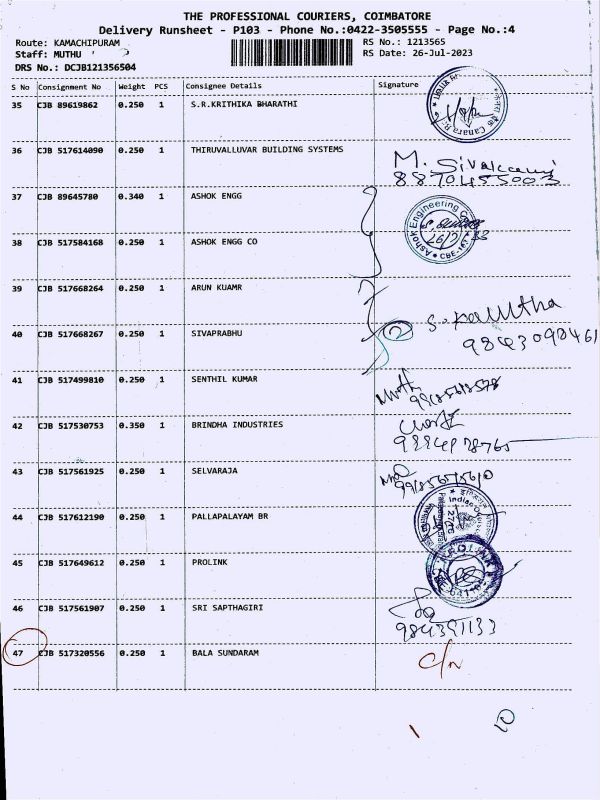 THE PROFESSIONAL COURIERS, COIMBATORE
Delivery Runsheet - P103 - Phone No.:0422-3505555 - Page No.:4
Route: KAMACHIPURAM RS No.: 1213565
Staff: MUTHU RS Date: 26-Jul-2023
DRS No.: DCJB121356504
S No Consignment No Weight PCS Consignee Details Signature
35 CJB 89619862 0.250 1 S.R.KRITHIKA BHARATHI
Canara
36 CJB 517614090 0.250 1 THIRUVALLUVAR BUILDING SYSTEMS
M. Sivakami
8870455003
37 CJB 89645780 0.340 1 ASHOK ENGG
Ashok Engineering
CBE-
38 CJB 517584168 0.250 1 ASHOK ENGG CO
39 CJB 517668264 0.250 1 ARUN KUAMR
40 CJB 517668267 0.250 1 SIVAPRABHU
2 S. Kavitha
9843098461
41 CJB 517499810 0.250 1 SENTHIL KUMAR
42 CJB 517530753 0.350 1 BRINDHA INDUSTRIES
43 CJB 517561925 0.250 1 SELVARAJA
44 CJB 517612190 0.250 1 PALLAPALAYAM BR
Indian
45 CJB 517649612 0.250 1 PROLINK
PROLINK
46 CJB 517561907 0.250 1 SRI SAPTHAGIRI
47 CJB 517320556 0.250 1 BALA SUNDARAM
C/n